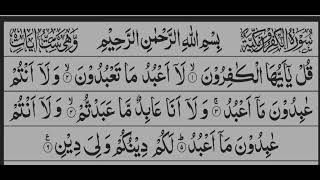 سُوْرَةُ الْكٰفِرُوْنَ مَكِّيَّةٌ بِسْمِ اللّٰهِ الرَّحْمٰنِ الرَّحِيْمِ وَهِيَ سِتُّ اٰيَاتٍ
قُلْ يٰٓاَيُّهَا الْكٰفِرُوْنَ ۙ۱ لَاۤ اَعْبُدُ مَا تَعْبُدُوْنَ ۙ۲ وَلَاۤ اَنْتُمْ
عٰبِدُوْنَ مَاۤ اَعْبُدُ ۚ۳ وَلَاۤ اَنَا عَابِدٌ مَّا عَبَدْتُّمْ ۙ۴ وَلَاۤ اَنْتُمْ
عٰبِدُوْنَ مَاۤ اَعْبُدُ ؕ۵ لَكُمْ دِيْنُكُمْ وَلِيَ دِيْنِ ۠۶